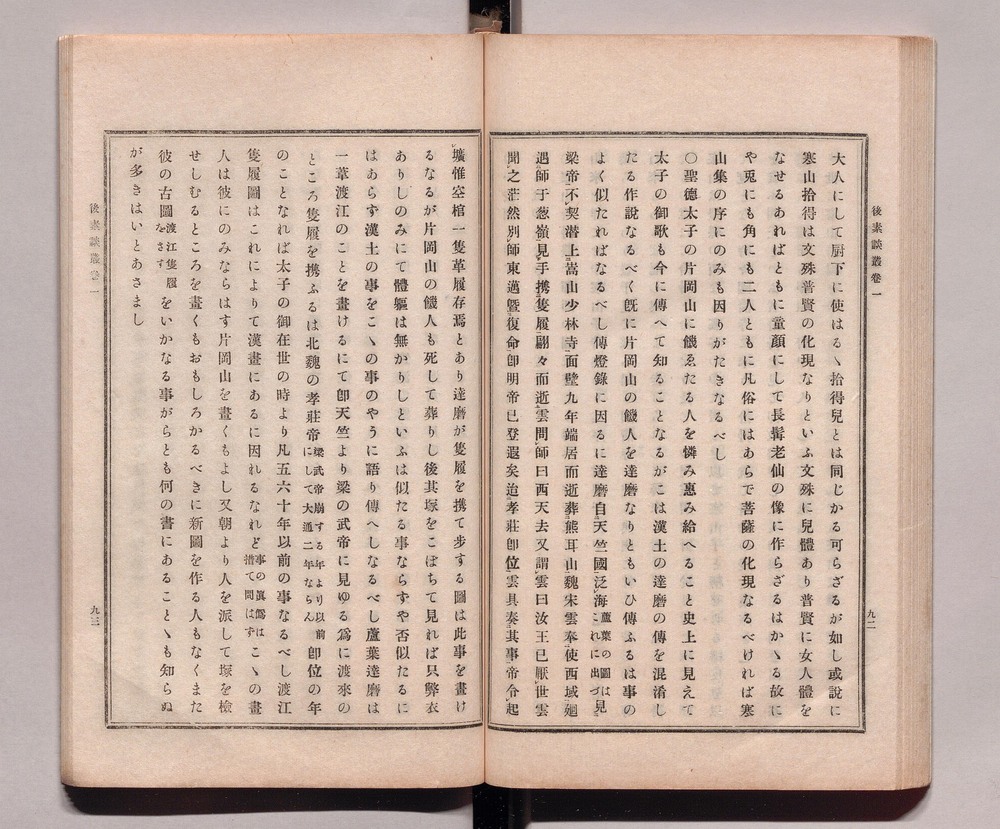 後素談叢卷一
九二
大人にして厨下に使はるゝ拾得兒とは同じかる可らざるが如し或說に
寒山拾得は文殊普賢の化現なりといふ文殊に兒體あり普賢に女人體を
なせるあればともに童顏にして長髯老仙の像に作らざるはかゝる故に
や兎にも角にも二人ともに凡俗にはあらで菩薩の化現なるべければ寒
山集の序にのみも因りがたきなるべし
〇聖德太子の片岡山に餓ゑたる人を憐み惠み給へること史上に見えて
太子の御歌も今に傳へて知ることなるがこは漢土の達磨の傳を混淆し
たる作說なるべく旣に片岡山の饑人を達磨なりともいひ傳ふるは事の
よく似たればなるべし傳燈錄に因るに達磨自天竺國泛海蘆葉の圖はこれに出づ見
梁帝不契潛上嵩山少林寺面壁九年端居而逝葬熊耳山魏宋雲奉使西域廻
遇師于葱嶺見手携隻履翩々而逝雲問師曰西天去又謂雲曰汝王已厭世雲
聞之茫然別師東邁曁復命卽明帝已登遐矣迨孝莊卽位雲具奏其事帝令起
壙惟空棺一隻革履存焉とあり達磨が隻履を携て步する圖は此事を畫け
るなるが片岡山の饑人も死して葬りし後其塚をこぼちて見れば只弊衣
ありしのみにて體軀は無かりしといふは似たる事ならずや否似たるに
はあらず漢土の事をこゝの事のやうに語り傳へしなるべし蘆葉達磨は
一葦渡江のことを畫けるにて卽天竺より梁の武帝に見ゆる爲に渡來の
ところ隻履を携ふるは北魏の孝莊帝梁武帝崩ずる年より以前にして大通二年ならん卽位の年
のことなれば太子の御在世の時より凡五六十年以前の事なるべし渡江
隻履圖はこれによりて漢畫にあるに因れるなれど事の眞僞は措て問はずこゝの畫
人は彼にのみならはす片岡山を畫くもよし又朝より人を派して塚を檢
せしむるところを畫くもおもしろかるべきに新圖を作る人もなくまた
彼の古圖渡江隻履をさすをいかなる事がらとも何の書にあることゝも知らぬ
が多きはいとあさまし
後素談叢卷一
九三